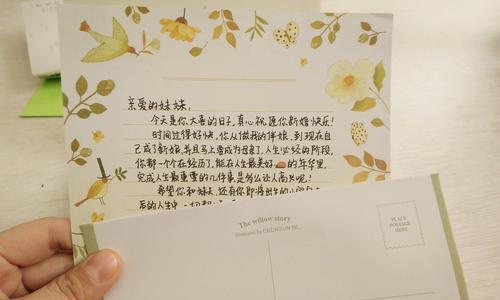 亲爱的妹妹:
今天是你大喜的日子,真心祝愿你新婚快乐!
时间过得好快,你从做我的伴娘,到现在自
己成了新娘,并且马上要成为母亲了,人生必经的阶段,
你都一个个在经历,能在人生最美好的年华里,
完成人生最重要的几件事是多么让人高兴呢!
希望你和妹妹,还有你即将出生的小宝
后的人生中一切都
The willow story
Illustrated by CHUN SUN HE
PLACE
POSTAGE
HERE